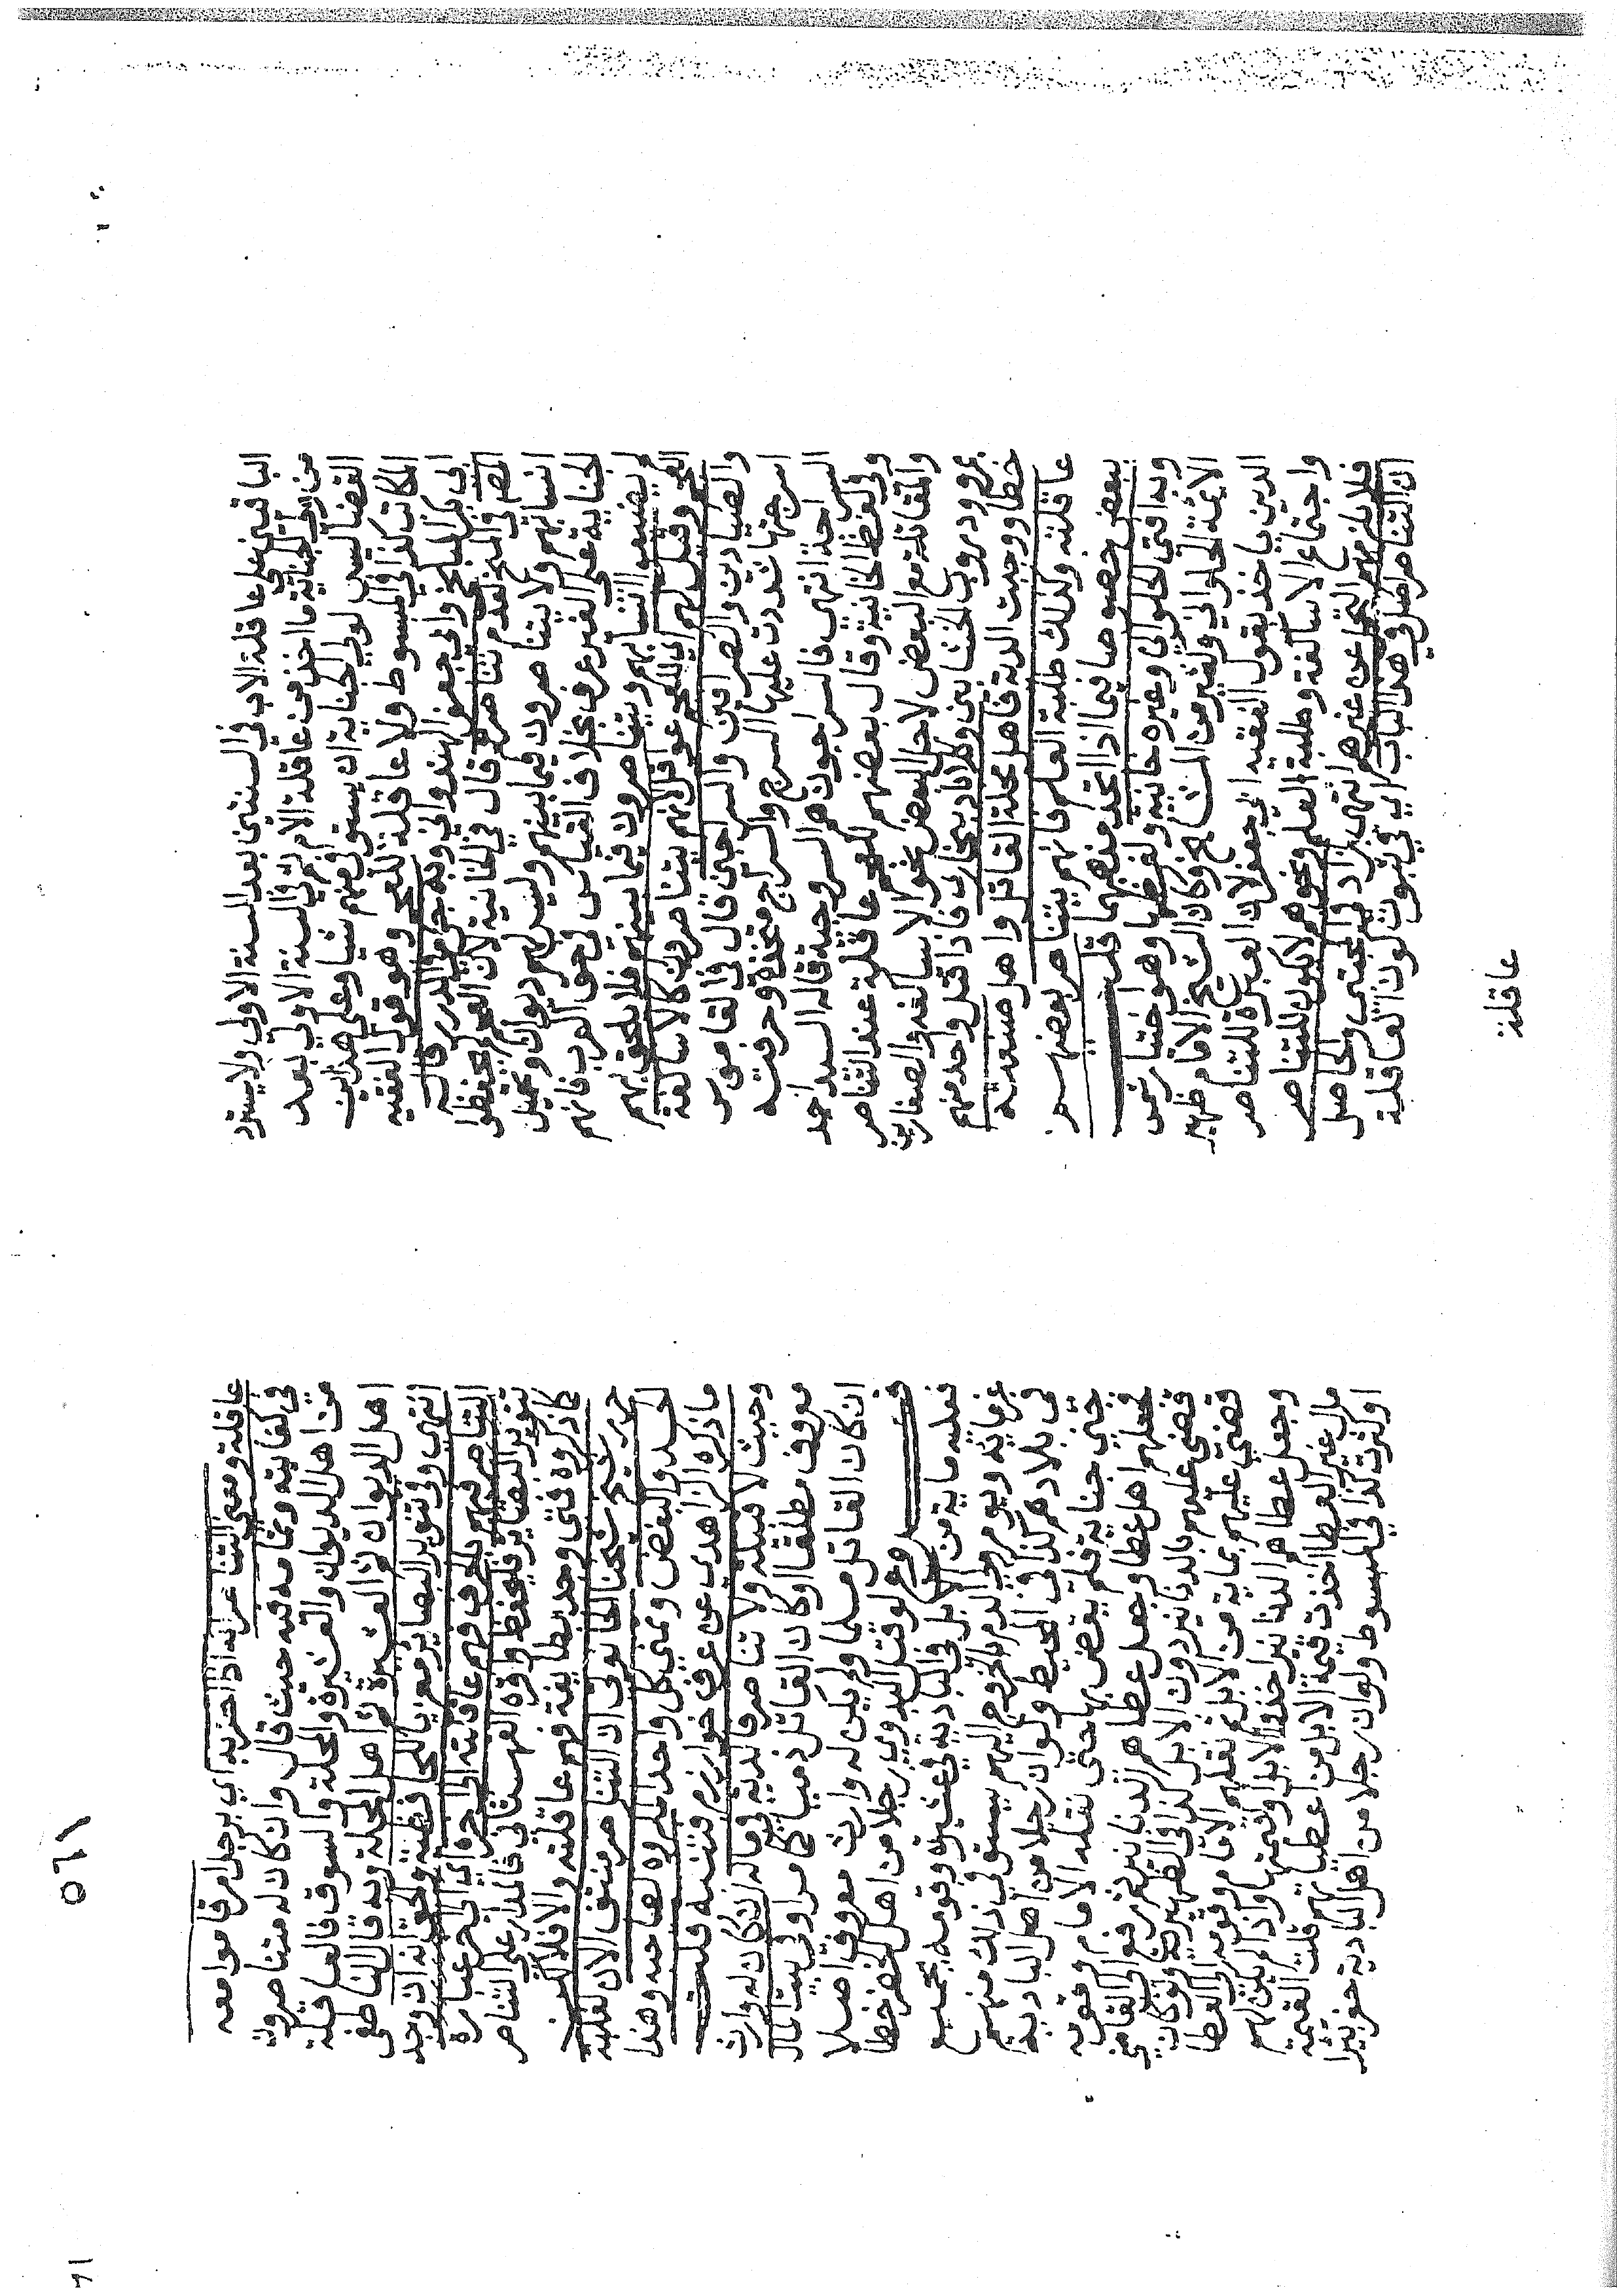 الباقي على عاقلة الاب في السنتين بعد السنة الاولى ولا يسترد
من ولي الجناية ما اخذ من عاقلة الام في السنة الاولى بعد
القضا ليس لولي الجناية ان يستوفي منهم شيا وعلى هذا ابن
المكاتب كذا في المبسوط ولا عاقلة للعجم وهو قول الفقيه
ابى بكر البلخي وابي جعفر الهندواني وبه جزم في الدرر قاله
المصنف في المنح لعدم تناصرهم قال في الخانية لان العجم لم يحفظوا
انسابهم ولا يتناصرون فيما بينهم وليس لهم ديوان وتحميل
الجناية على الغير عرف بخلاف القياس في حق العرب فانهم
لم يضيعوا انسابهم ويتناصرون فيما بينهم فلا يلحق بهم
العجم وقيل لهم اي للعجم عواقل لانهم يتناصرون كالاساكفة
والصيادين والصرافين والسراجين قال في القاموس
اسرجتها شددت عليها السرج والسراج متخذه وحرفته
السراجة انتهى فالسراجون هم السروجية قاله السيد احمد
وفي لفظ الخانية وقال بعضهم للعجم عاقلة عند التناصر
والمقاتلة مع البعض لاجل البعض نحو الاساكفة والصفارين
بمرو ودروب الخشابين وكلاباد ببخارى فاذا قتل واحد منهم
خطا ووجبت الدية فاهل محلة القاتل واهل صنعته
عاقلته وكذلك طلبة العلم فانهم يتناصر بعضهم
ببعض خصوصا فيما اذا اتحد مذهبهما قلت
وبه افتى الحلواني وغيره خانية ولفظها وهو اختيار شمس
الائمة الحلواني وكثير من المشايخ وكان الشيخ الامام ظهير
الدين ياخذ بقول الفقيه ابي جعفر لان العبرة للتناصر
واجتماع الاساكفة وطلبة العلم ونحوهم لا يكون للتناصر
فلا يلزمهم التحمل عن غيرهم انتهى زاد في المجتبى والحاصل
ان التناصر اصل في هذا الباب اي في ثبوت كون العاقلة
عاقلة
عاقلة ومعنى التناصر انه اذا حزبه اي برجل امر قاموا معه
في كفايته وتمامه فيه حيث قال وان كان له متناصرون
من اهل الديوان والعشيرة والمحلة والسوق فالعاقلة
اهل الديوان ثم العشيرة ثم اهل المحلة وبه قال الناطفي
انتهى وفي تنوير البصائر معزيا للحافظية والحق انه ان وجد
التناصر فيهم بالحرف فهم عاقلته الى اخره اي الى اخر عبارة
تنوير البصائر فليحفظ واقره القهستاني فالمدار على التناصر
كما ذكروه فمتى وجد بطايفة فهم عاقلته والا فلا لكن
حرر شيخ شيخنا الحانوتي ان التناصر منتف الان لغلبة
الحسد والبغض وتمني كل واحد المكروه لصاحبه وهذا
ما ذكره الزاهدي عن عرف خوارزم فتنبه قلت
وحيث لا قبيلة ولا تناصر فالدية في ماله ان كان له وارث
معروف مطلقا او كان القاتل ذميا كما مر او في بيت المال
ان كان القاتل مسلما ولم يكن له وارث معروف اصلا
فروع لو قتل البدوي رجلا من اهل الحضر خطا
فعليه ماية من الابل في البادية في عشيرته وقومه بجميع
عرفايه ويومر ولي الدم بالخروج اليهم يستوفي ذلك منهم
في بلادهم كذا في المحيط ولو ان رجلا من اهل البادية
جنى جناية فلم يقض بها حتى نقله الامام وقومه
فجعلهم اهل عطا وجعل عطاهم الدنانير ثم رفع الى القاضي
قضى عليهم بالدنانير دون الابل كذا في الظهيرية ولو كان
قضي عليهم بماية من الابل ثم نقلهم الامام وقومه الى العطا
وجعل عطاهم الدنانير اخذوا الابل او قيمتها واذا لم يكن لهم
مال غير العطا اخذت قيمة الابل من عطياتهم قلت القيمة
او كثرت كذا في المبسوط ولو ان رجلا من اهل البادية حفر بيرا